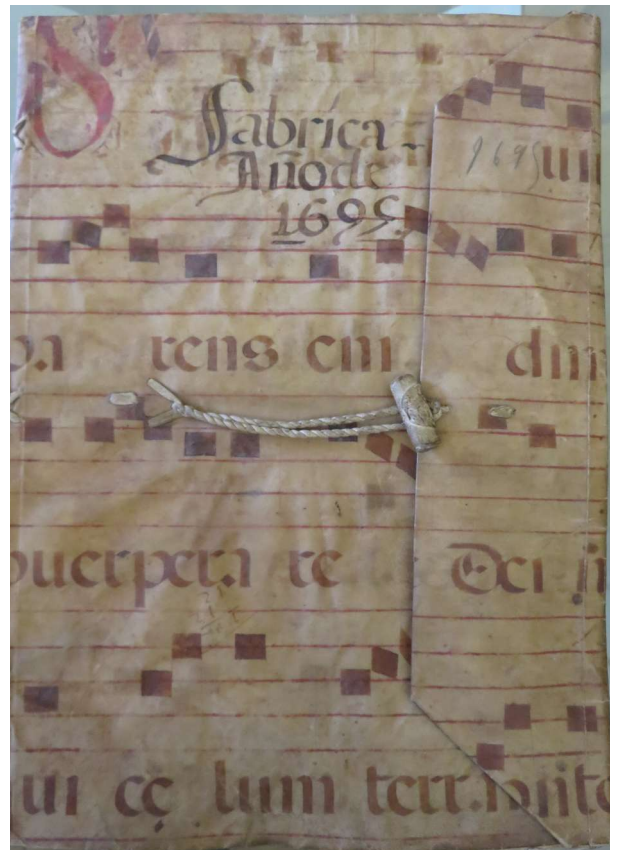 S
Fabrica
Año de
1695
1695
ui
rens eni dim
puerpera re Dei
ui cę lum terr